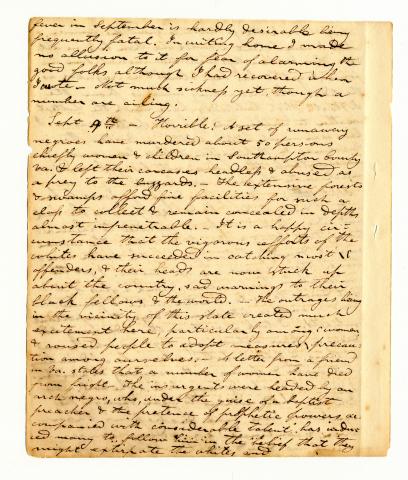 fever in September is hardly desirable being
frequently fatal. In writing home I made
no allusion to it for fear of alarming the
good folks although I had recovered when
I wrote - Not much sickness yet, though a
number are ailing.
Sept 9th - Horrible! A set of runaway
negroes have murdered about 50 persons
chiefly women & children in Southampton County
Va. & left their carcases headless & abused as
a prey to the buzzards. - The extensive forests
& swamps afford fine facilities for such a
class to collect & remain concealed in depths
almost impenetrable. - It is a happy cir-
cumstance that the vigorous efforts of the
whites have succeeded in catching most
offenders, & their heads are now stuck up
about the country, sad warnings to their
black fellows & the world. - The outrages being
in the vicinity of this state created much
excitement here, particularly among women
& roused people to adopt measures precau-
tion among ourselves. - A letter from a friend
in Va. states that a number of women have died
from fright. The insurgents were headed by an
negro, who, under the guise of a baptist
preacher & the pretence of prophetic powers, ac
companied with considerable talent, has induc
ed many to follow him in the belief that they
might extirpate the whites and